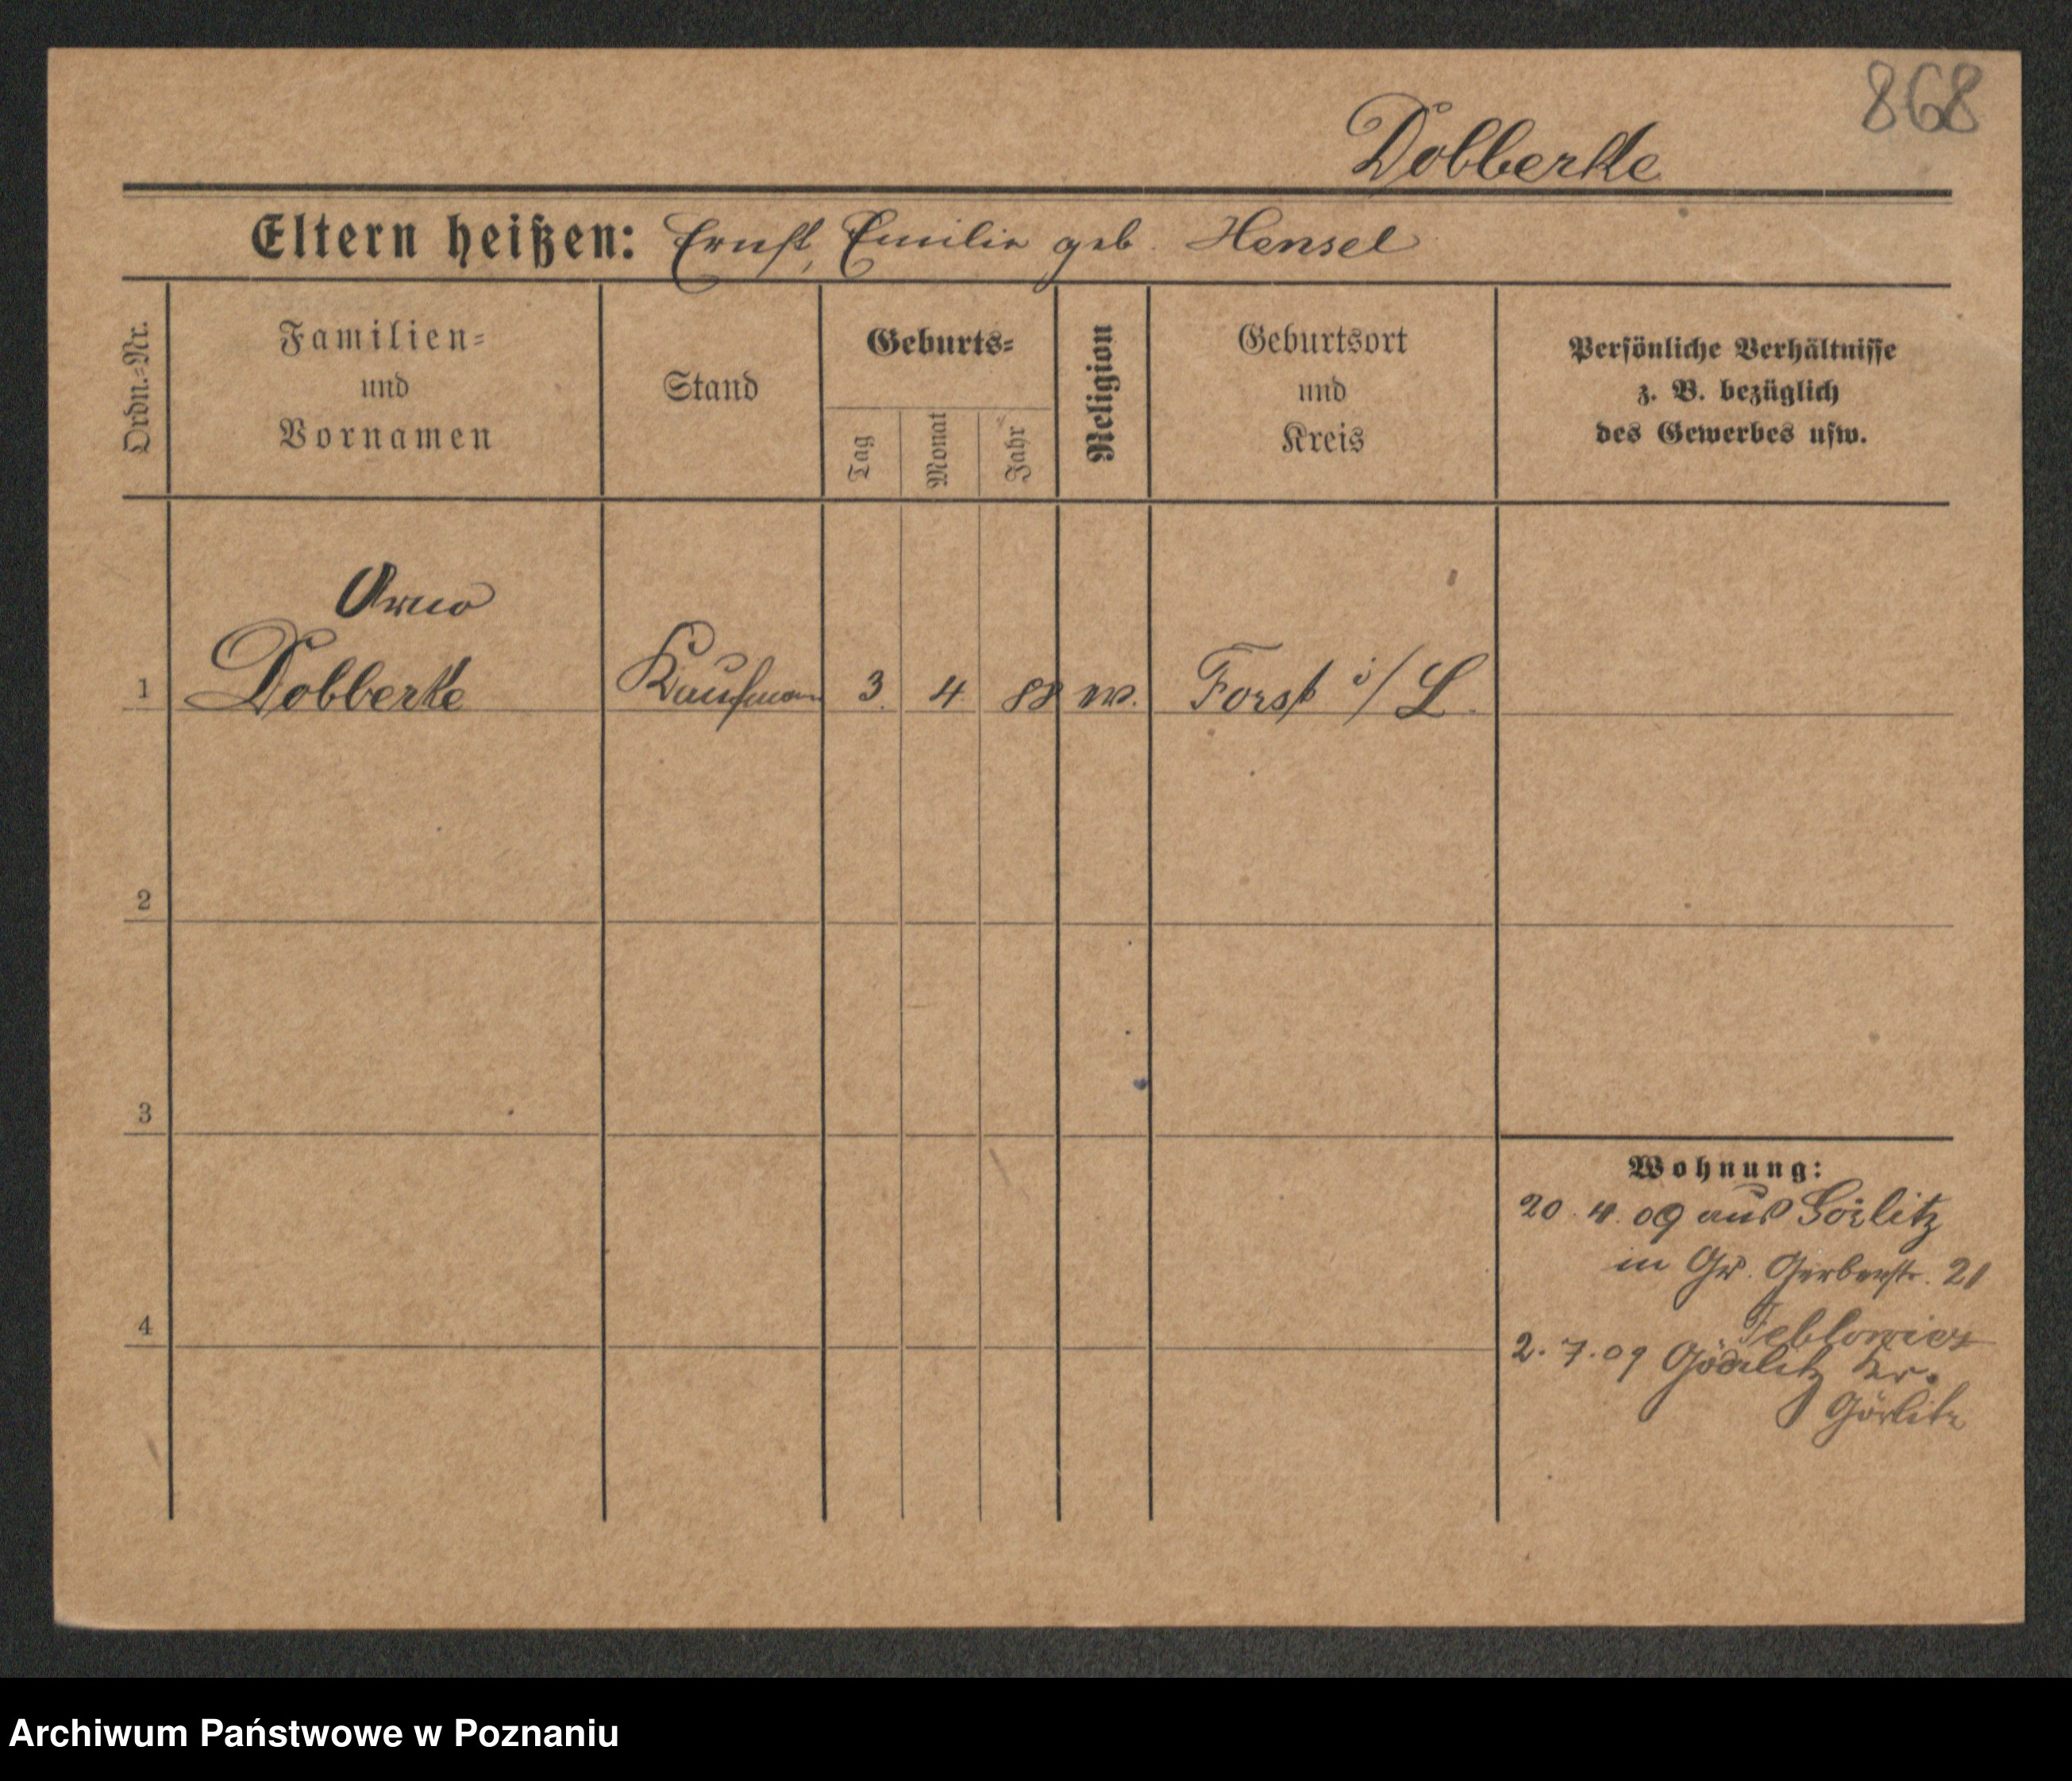 868
Dobberke
Eltern heißen: Ernst, Emilie geb. Hensel
Ordn.-Nr.
Familien-
und
Vornamen
Stand
Geburts-
Tag
Monat
Jahr
Religion
Geburtsort
und
Kreis
Persönliche Verhältnisse
z. B. bezüglich
des Gewerbes usw.
Arno
1 Dobberke Kaufmann 3. 4. 88 ev. Forst i/L.
2
3
Wohnung:
20.4.09 aus Görlitz
in Gr. Gerberstr. 21
4
2.7.09 Kr.
Görlitz
Archiwum Państwowe w Poznaniu